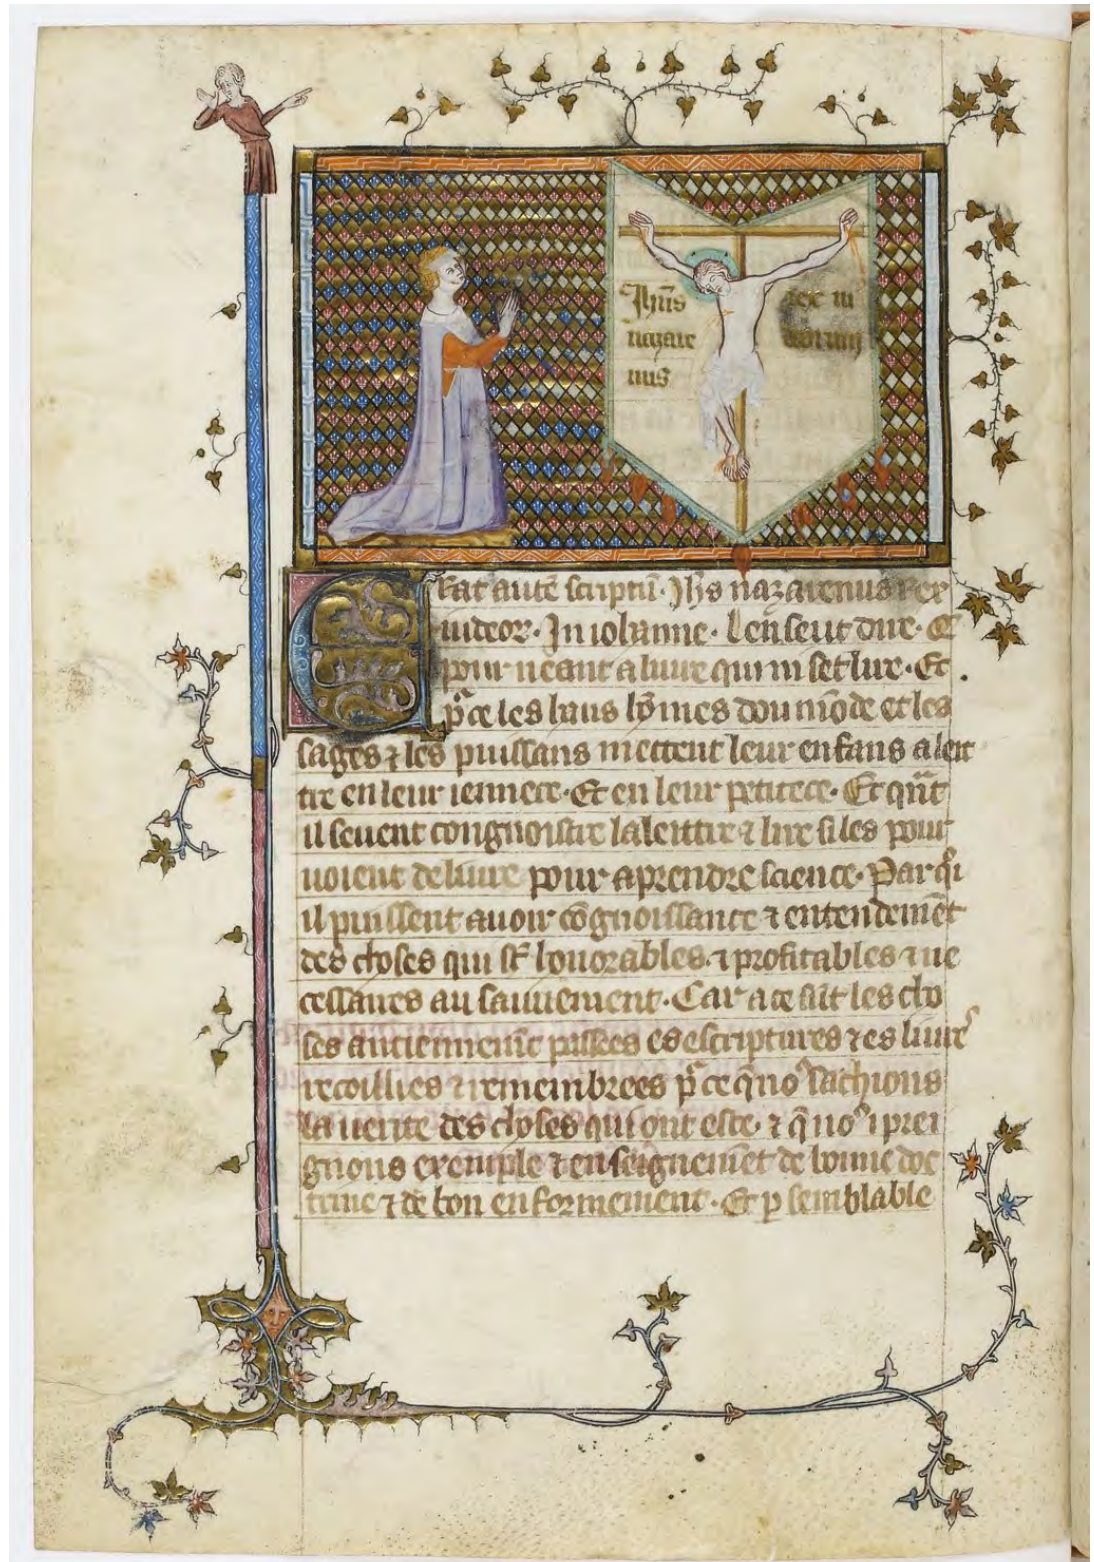 Jhus
nazare
nus
rex iu
Erat aute scriptu · Jhs nazarenus Rex
iudeor · In iohanne · Len seut dire · Et
pour neant a liure qui ni set lire · Et
p ce les haus homes dou mode et les
sages ⁊ les puissans mettent leur enfans a leit
tre en leur iennece · Et en leur petitece · Et quat
il seuent congnoistre la leittre ⁊ lire si les pour
uoient de liure pour aprendre science · Par qi
il puissent auoir cognoissance ⁊ entendemet
des choses qui st honorables · ⁊ profitables ⁊ ne
cessaires au sauuement · Car a ce sut les cho
ses anciennemt passees es escriptures ⁊ es liures
recoillies ⁊ remembrees p ce q no sachions
la uerite des choses qui ont este · ⁊ q no i prei
gnons exemple ⁊ enseignemet de bonne doc
trine ⁊ de bon enformement · Et p semblable